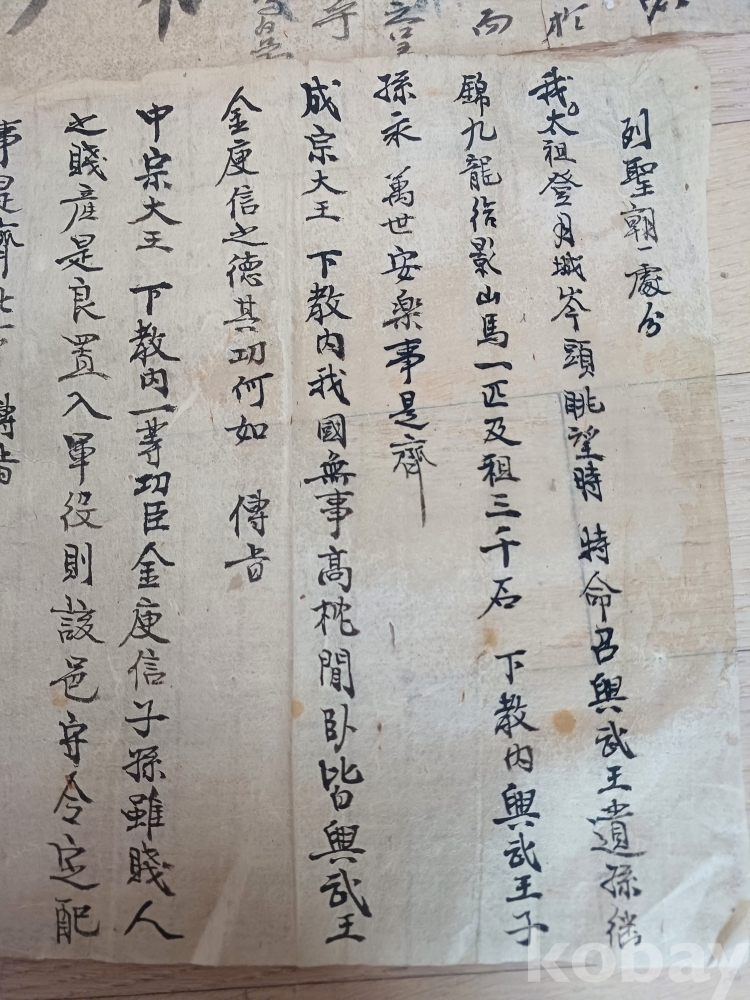 列聖朝處分
我太祖登月城岑頭眺望時 特命召興武王遺孫継
錦九龍給影山馬一匹及租三千石 下敎內興武王子
孫永 萬世安樂事是齊
成宗大王 下敎內我國無事高枕閒臥皆興武王
金庾信之德其功何如 傳旨
中宗大王 下敎內一等功臣金庾信子孫雖賤人
之賤産是良置入軍役則該邑守令定配
事是齊
傳旨
kobay